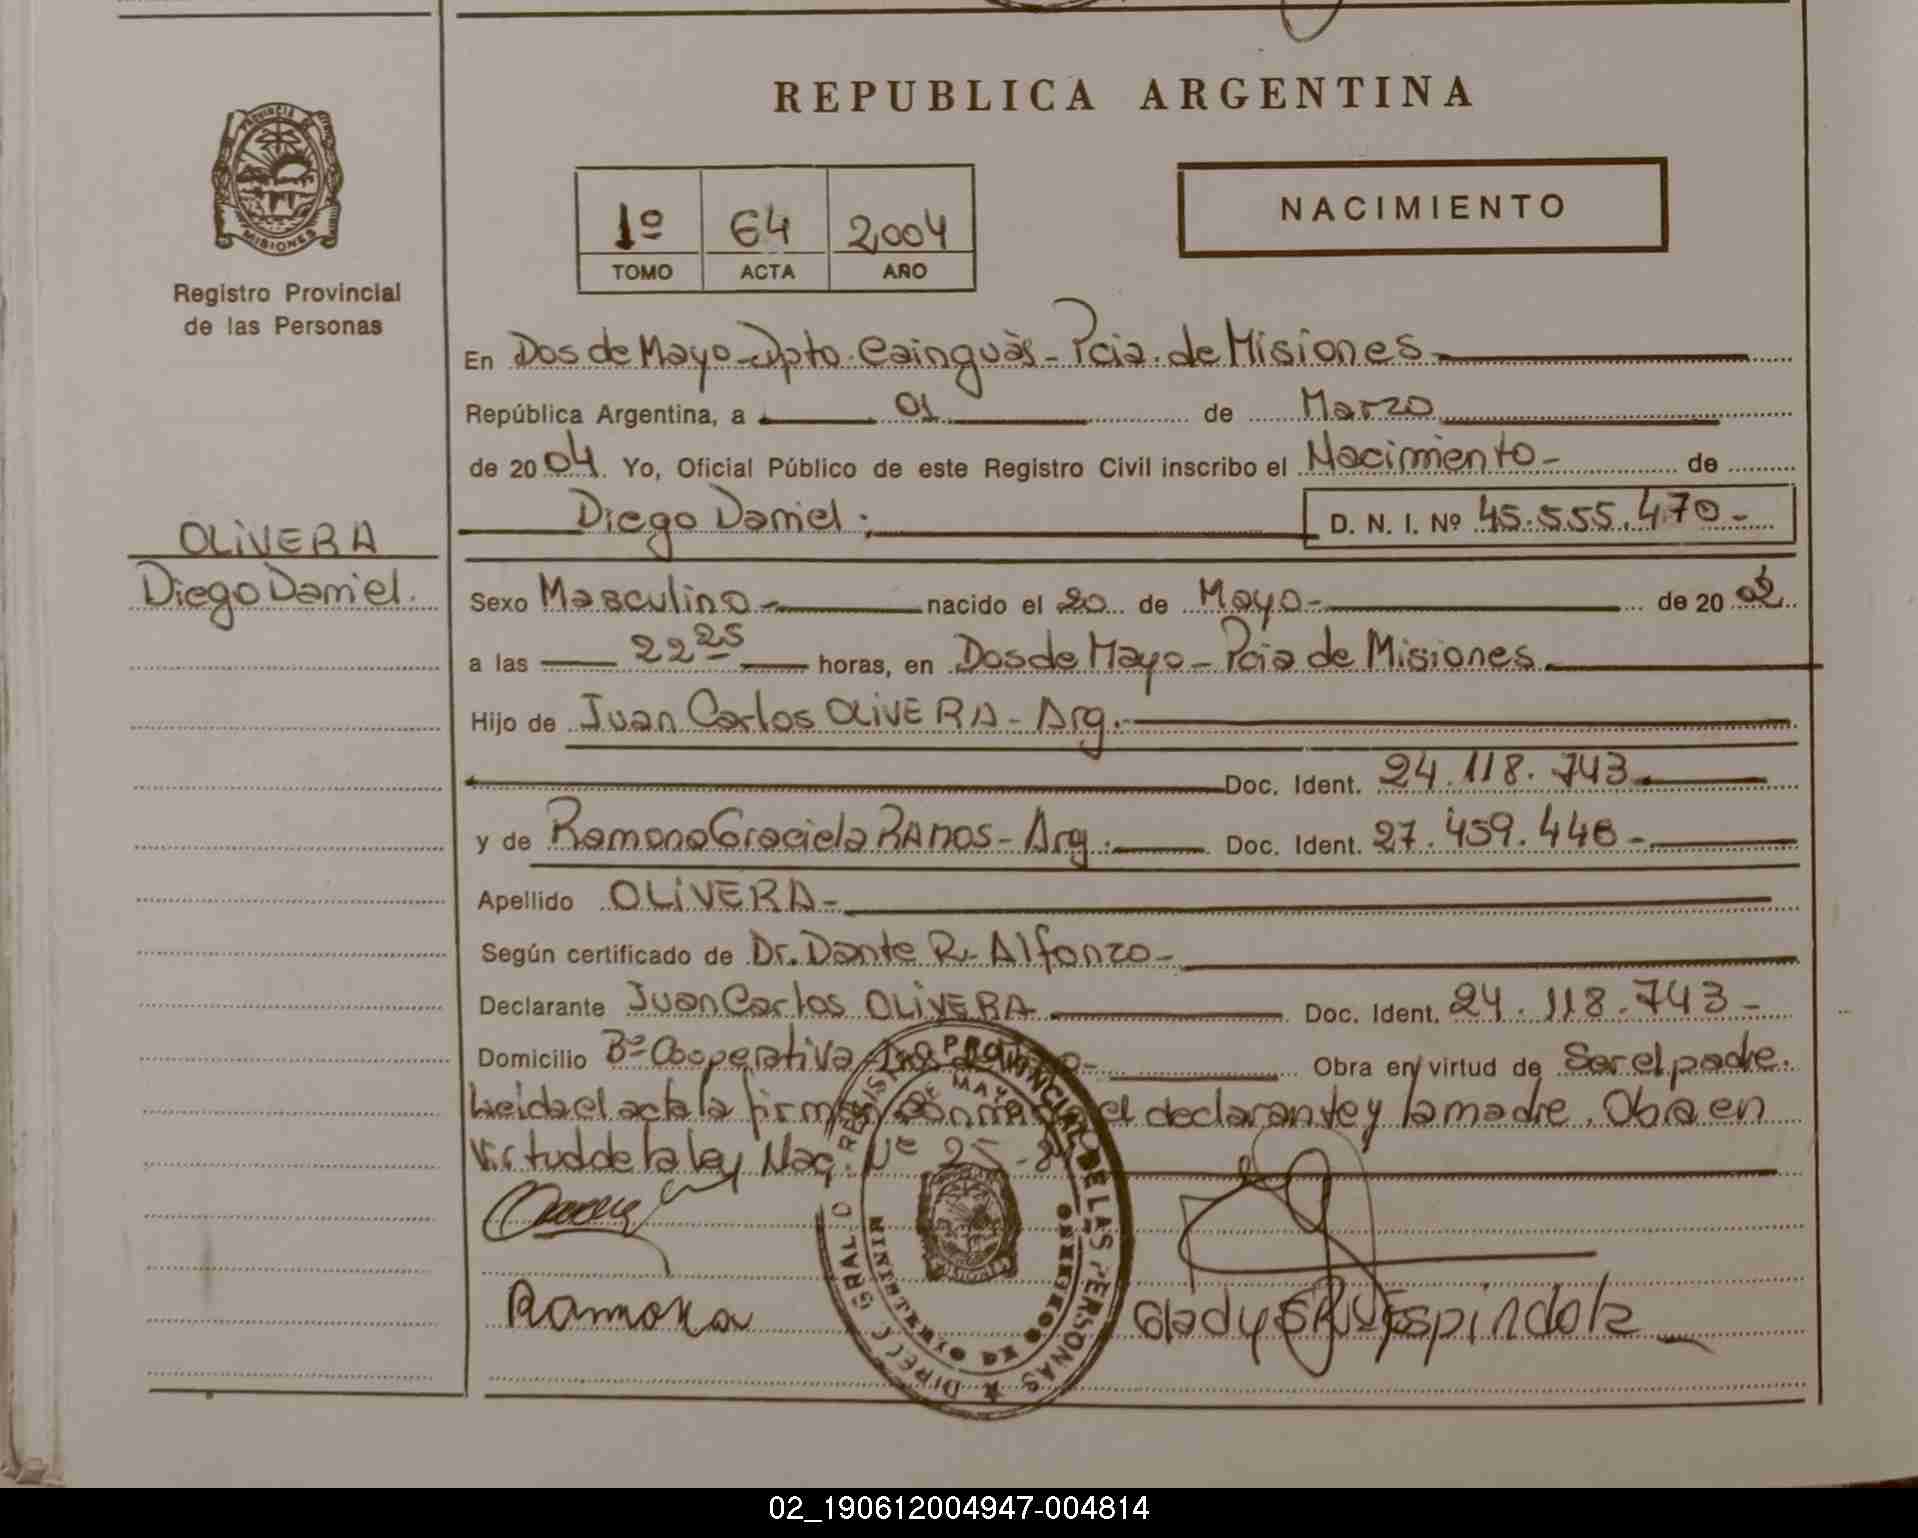 REPUBLICA ARGENTINA
PROVINCIA DE
MISIONES
Registro Provincial
de las Personas
1º 64 2004
TOMO ACTA AÑO
NACIMIENTO
En Dos de Mayo - Dpto. Cainguàs - Pcia. de Misiones
República Argentina, a 01 de Marzo
de 2004. Yo, Oficial Público de este Registro Civil inscribo el Nacimiento - de
Diego Daniel. D. N. I. Nº 45.555.470-
OLIVERA
Diego Daniel.
Sexo Masculino - nacido el 20 de Mayo - de 2002
a las 22 25 horas, en Dos de Mayo - Pcia de Misiones
Hijo de Juan Carlos OLIVERA - Arg.
Doc. Ident. 24.118.743
y de Ramona Graciela RAMOS - Arg. Doc. Ident. 27.459.446-
Apellido OLIVERA -
Según certificado de Dr. Dante R. Alfonzo -
Declarante Juan Carlos OLIVERA Doc. Ident. 24.118.743-
Domicilio Bº Cooperativa - Dos de Mayo - Obra en virtud de Ser el padre.
Leida el acta la firman conmigo el declarante y la madre. Obra en
virtud de la ley Nac. Nº 25.
DIREC GRAL D REGISTRO PROVINCIAL DE LAS PERSONAS
DOS DE MAYO
MINISTERIO DE GOBIERNO
MISIONES
Ramona
Gladys Espindola
02_190612004947-004814